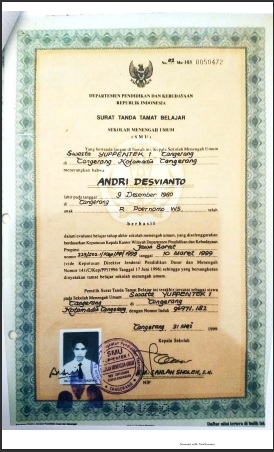 No. 02 Mu 103 0050472
DEPARTEMEN PENDIDIKAN DAN KEBUDAYAAN
REPUBLIK INDONESIA
SURAT TANDA TAMAT BELAJAR
SEKOLAH MENENGAH UMUM
(SMU)
Yang bertanda tangan di bawah ini, Kepala Sekolah Menengah Umum
Swasta YUPPENTEK 1 Tangerang
di Tangerang Kotamadia Tangerang
menerangkan bahwa
ANDRI DESVIANTO
lahir pada tanggal 9 Desember 1980
di Tangerang
anak R. Poernomo WS. telah
berhasil
dalam evaluasi belajar tahap akhir sekolah menengah umum, yang diselenggarakan
berdasarkan Keputusan Kepala Kantor Wilayah Departemen Pendidikan dan Kebudayaan
Propinsi Jawa Barat
Nomor tanggal 10 Maret 1999
dan Keputusan Direktur Jenderal Pendidikan Dasar dan Menengah
Nomor Tanggal 17 Juni 1996 sehingga yang bersangkutan
dinyatakan tamat belajar sekolah menengah umum.
Pemilik Surat Tanda Tamat Belajar ini terakhir tercatat sebagai siswa
pada Sekolah Menengah Umum Swasta YUPPENTEK 1
Tangerang di Tangerang
Kotamadia Tangerang dengan Nomor Induk
Tangerang 31 Mei 1999
Kepala Sekolah
SMU
NIP
Daftar nilai tertera di balik